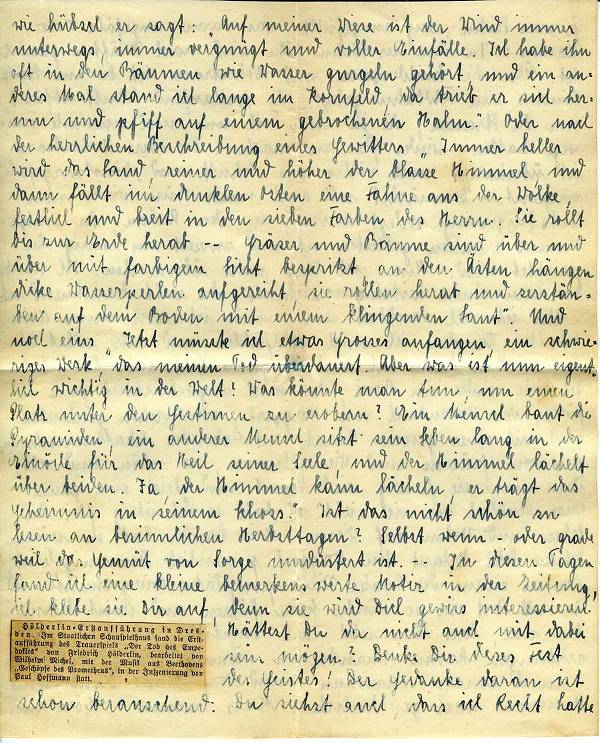 wie hübsch er sagt: „Auf meiner Wiese ist der Wind immer
unterwegs, immer vergnügt und voller Einfälle. Ich habe ihn
oft in den Bäumen wie Wasser gurgeln gehört, und ein an-
deres Mal stand ich lange im Kornfeld, da trieb er sich her-
um und pfiff auf einem gebrochenen Halm." Oder nach
der herrlichen Beschreibung eines Gewitters „Immer heller
wird das Land, reiner und höher der blasse Himmel, und
dann fällt im dunklen Osten eine Fahne aus der Wolke,
festlich und breit in den sieben Farben des Herrn. Sie rollt
bis zur Erde herab -- Gräser und Bäume sind über und
über mit farbigem Licht bespritzt an den Ästen hängen
dicke Wasserperlen aufgereiht, sie rollen herab und zerstän-
ben auf dem Boden mit einem klingenden Laut". Und
noch eins „Jetzt müsste ich etwas Grosses anfangen, ein schwie-
riges Werk, das meinen Tod überdauert. Aber was ist nun eigent-
lich wichtig in der Welt! Was könnte man tun, um einen
Platz unter den Gestirnen zu erobern? Ein Mensch baut die
Pyramiden, ein anderer Mensch sitzt sein Leben lang in der
Einöde für das Heil seiner Seele, und der Himmel lächelt
über beiden. Ja, der Himmel kann lächeln, er trägt das
Geheimnis in seinem Schoss." Ist das nicht schön zu
lesen an besinnlichen Herbsttagen? Selbst wenn - oder grade
weil das Gemüt von Sorge umdüstert ist. -- In diesen Tagen
fand ich eine kleine bemerkenswerte Notiz in der Zeitung,
ich klebe sie Dir auf, denn sie wird Dich gewiss interessieren
Hölderlin-Erstaufführung in Dres-
den. Im Staatlichen Schauspielhaus fand die Erst-
aufführung des Trauerspiels „Der Tod des Empe-
dokles" von Friedrich Hölderlin, bearbeitet von
Wilhelm Michel, mit der Musik aus Beethovens
„Geschöpfe des Prometheus", in der Inszenierung von
Paul Hoffmann statt.
Hättest Du da nicht auch mit dabei
sein mögen? Denke Dir dieses Fest
des Geistes! Der Gedanke daran ist
schon berauschend. Du siehst auch, dass ich Recht hatte